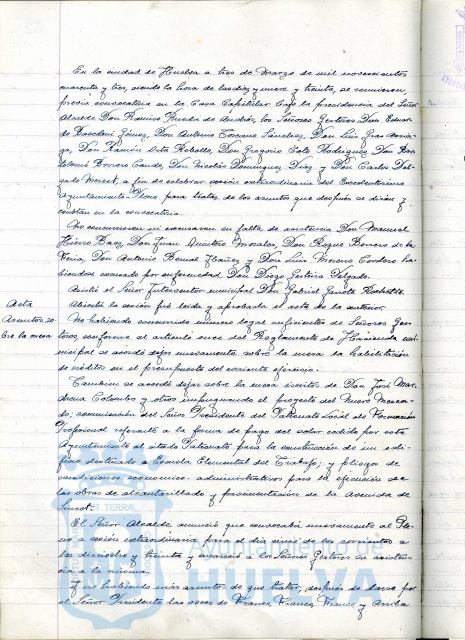 En la ciudad de Huelva a tres de Marzo de mil novecientos
cuarenta y tres, siendo la hora de las diez y nueve y treinta, se reunieron
previa convocatoria en la Casa Capitular bajo la presidencia del Señor
Alcalde Don Ramiro Rueda de Andrés, los Señores Gestores Don
Don Antonio Don Luis
Don Ramón Don Gregorio Don
Don Nicolás Dominguez Diaz y Don Carlos Del-
gado a fin de celebrar sesión extraordinaria del Excelentísimo
Ayuntamiento Pleno para tratar de los asuntos que después se dirán y
constan en la convocatoria.
No concurrieron ni excusaron su falta de asistencia Don Manuel
Hierro Don Juan Quintero Morales, Don Roque Barrera de la
Don Antonio Ibañez y Don Luis Moreno Cordero ha-
biéndose excusado por enfermedad Don Diego Delgado.
Asiste el Señor Interventor municipal Don Gabriel
Abierta la sesión fué leida y aprobada el acta de la anterior.
Acta
Asuntos so-
bre la mesa
No habiendo concurrido número legal suficiente de Señores Ges-
tores, conforme al artículo once del Reglamento de Hacienda mu-
nicipal se acordó dejar nuevamente sobre la mesa la habilitación
de créditos en el presupuesto del corriente ejercicio.
Tambien se acordó dejar sobre la mesa escritos de Don José
Colombo y otros impugnando el proyecto del Nuevo Merca-
do; comunicación del Señor Presidente del Patronato Local de Formación
Profesional referente a la forma de pago del solar cedido por este
Ayuntamiento al citado Patronato para la construcción de un edi-
ficio destinado a Escuela Elemental del Trabajo; y pliegos de
condiciones economico-administrativas para la ejecución de
las obras de alcantarillado y pavimentación de la Avenida de

El Señor Alcalde anunció que convocaba nuevamente al Ple-
no a sesión extraordinaria para el día cinco de los corrientes a
las dieciocho y treinta y encareció a los Señores Gestores su asisten-
cia a la misma.
Y no habiendo más asuntos de que tratar, después de darse por
el Señor Presidente las voces de Franco, Franco, Franco y Arriba
Ayuntamiento de
HUELVA